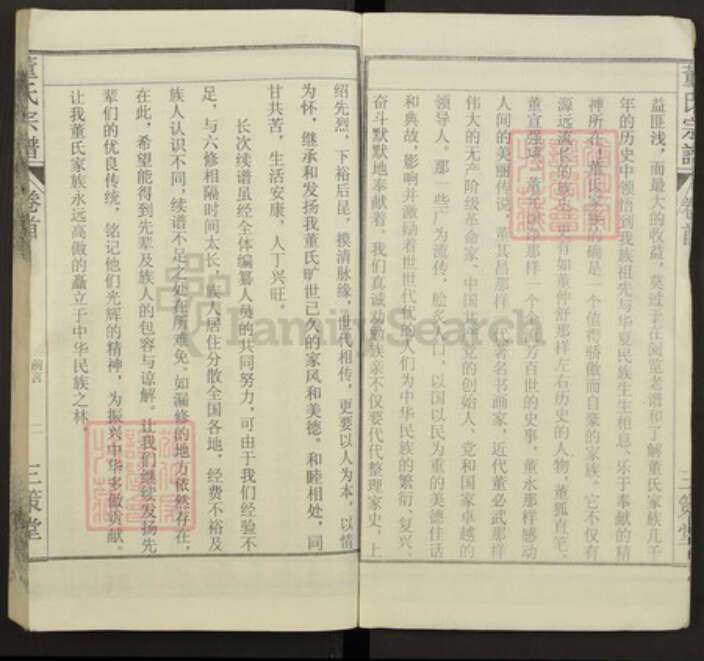 董氏宗譜
卷首
三策堂
益匪浅，而最大的收益，莫过于在阅览老谱和了解董氏家族几千
年的历史中领悟到我族祖先与华夏民族生生相息、乐于奉献的精
神所在！董氏家族的确是一个值得骄傲而自豪的家族。它不仅有
源远流长的族史，更有如董仲舒那样左右历史的人物，董狐直笔、
董宣强项、董允那样一个个流芳百世的史事，董永那样感动
人间的美丽传说，董其昌那样一代著名书画家，近代董必武那样
伟大的无产阶级革命家、中国共产党的创始人、党和国家卓越的
领导人。那一些广为流传，脍炙人口，以国以民为重的美德佳话
和典故，影响并激励着世世代代的人们为中华民族的繁衍、复兴、
奋斗默默地奉献着。我们真诚劝勉族亲不仅要代代整理家史，上
绍先烈，下裕后昆，摸清脉缘，世代相传，更要以人为本，以情
为怀，继承和发扬我董氏旷世已久的家风和美德。和睦相处，同
甘共苦，生活安康，人丁兴旺。
长次续谱虽经全体编纂人员的共同努力，可由于我们经验不
足，与六修相隔时间太长，族人居住分散全国各地，经费不裕及
族人认识不同，续谱不足之处在所难免。如漏修的地方依然存在，
在此，希望能得到先辈及族人的包容与谅解。让我们继续发扬先
辈们的优良传统，铭记他们光辉的精神，为振兴中华多做贡献。
让我董氏家族永远高傲的矗立于中华民族之林。
董氏宗譜
卷首
前言
二
三策堂
FamilySearch